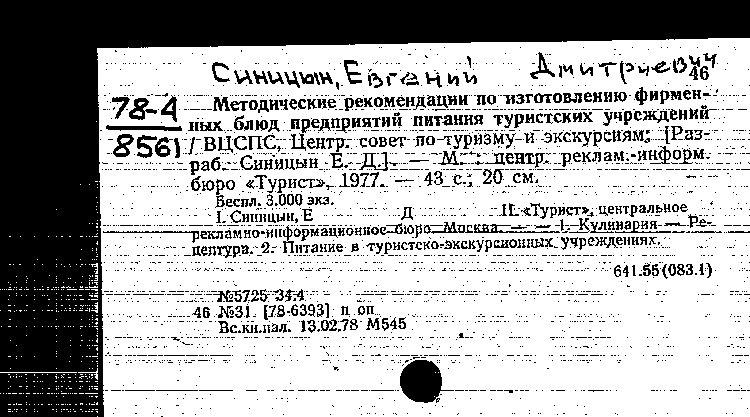 Синицын, Евгений Дмитриевич
46
78-4
8561
Методические рекомендации по изготовлению фирмен-
ных блюд предприятий питания туристских учреждений
/ ВЦСПС, Центр. совет по туризму и экскурсиям; [Раз-
раб. Синицын Е. Д.]. — М. : центр. реклам.-информ.
бюро «Турист», 1977. — 43 с.; 20 см.
Беспл. 3.000 экз.
I. Синицын, Е Д II. «Турист», центральное
рекламно-информационное бюро. Москва. — — 1. Кулинария — Ре-
цептура. 2. Питание в туристско-экскурсионных учреждениях.
641.55(083.1)
№5725 34.4
46 №31 [78-6393] п оп
Вс.кн.пал. 13.02.78 М545